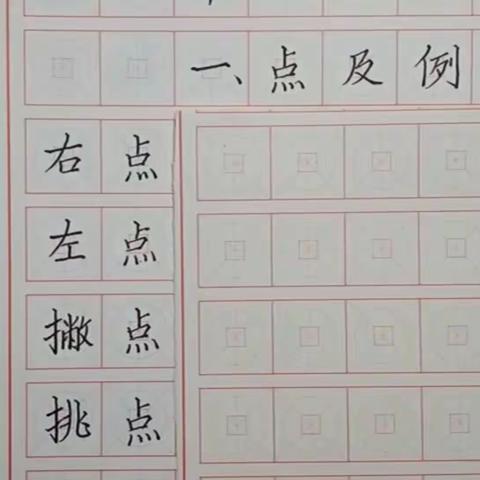 一、点及例
右点
左点
撇点
挑点